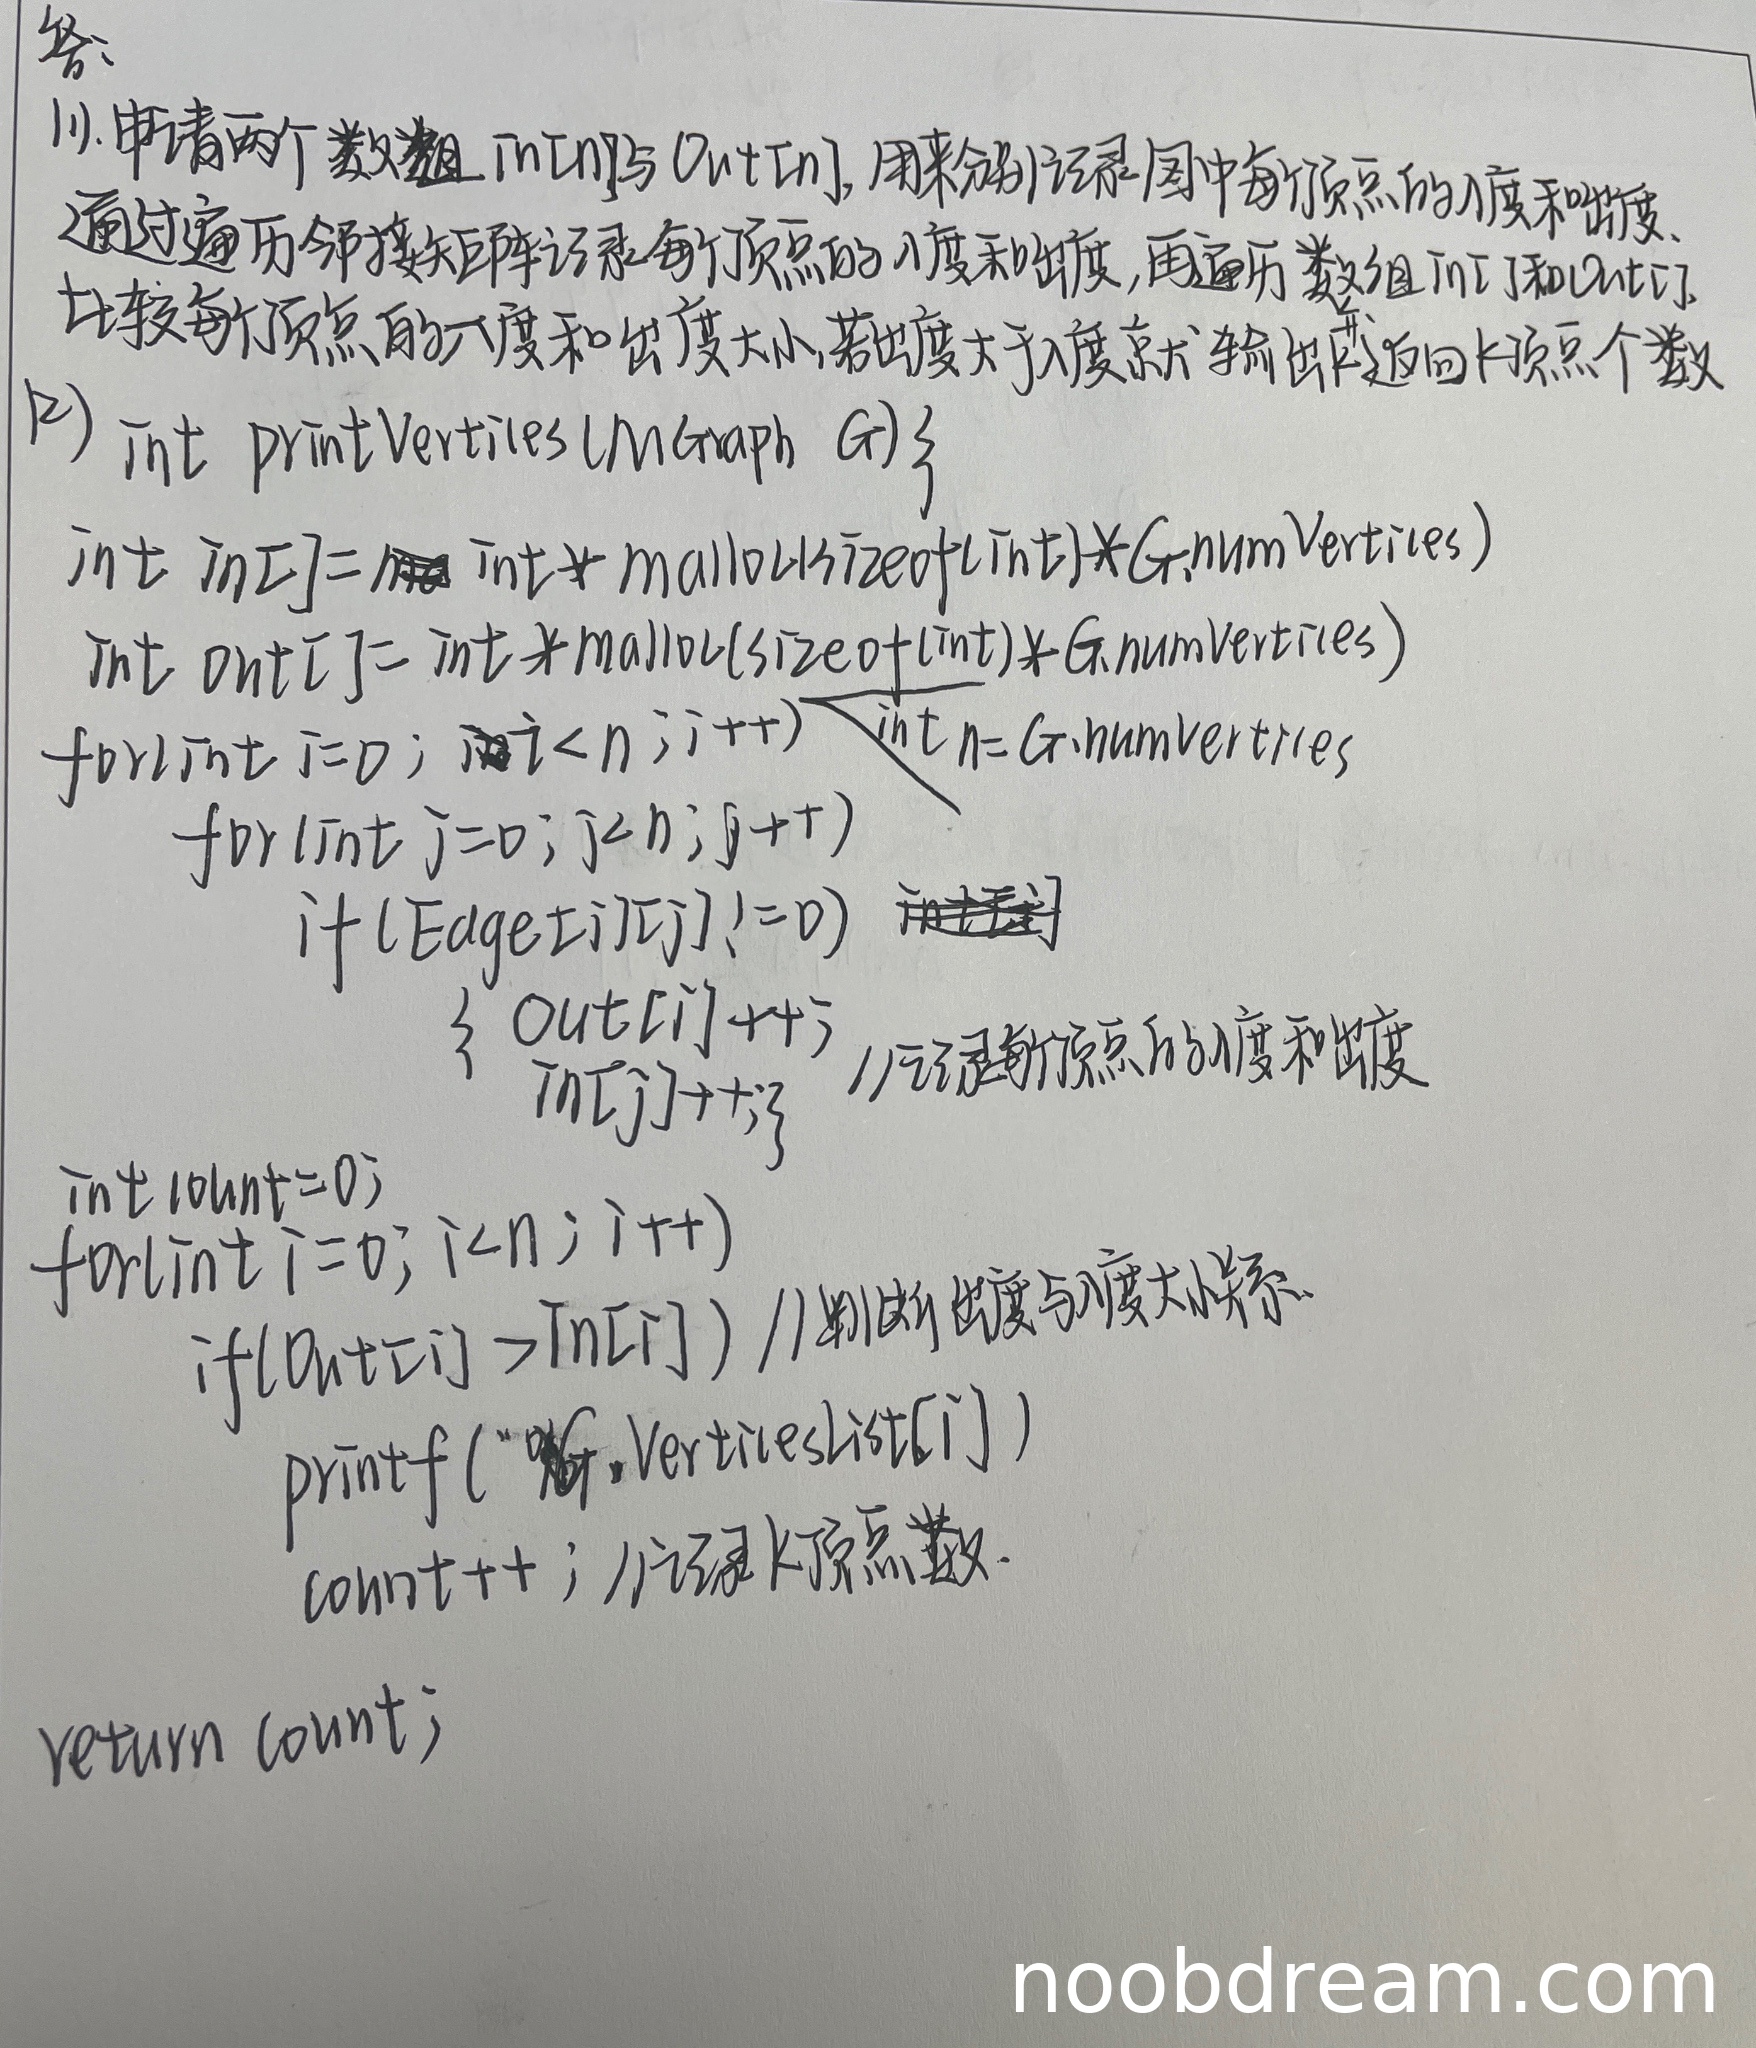 答:
(1).申请两个数组 in[n]与Out[n],用来分别记录图中每个顶点的入度和出度、
通过遍历邻接矩阵记录每个顶点的入度和出度,再遍历数组in[]和Out[],
比较每个顶点的入度和出度大小,若出度大于入度就输出并返回K顶点个数
(2) int printVertices(MGraph G){
int in[]= int* malloc(sizeof(int)*G.numVertices)
int out[]= int*malloc(sizeof(int)*G.numVertices)
int n=G.numvertices
for(int i=0; i<n;i++)
for(int j=0;j<n;j++)
if(Edge[i][j]!=0)
{ Out[i]++;
in[j]++;} //记录每个顶点的入度和出度
int count=0;
for(int i=0;i<n;i++)
if(Out[i]>In[i]) //判断出度与入度大小关系.
printf("G.VerticesList[i])
count++; //记录K顶点数.
return count;
noobdream.com